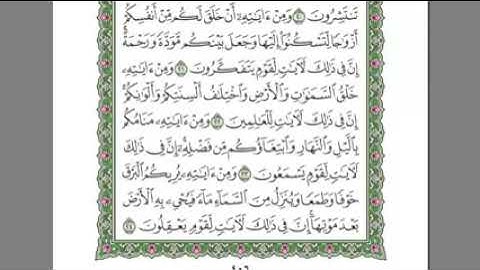 تَنتَشِرُونَ ٢٠ وَمِنْ ءَايَٰتِهِۦٓ أَنْ خَلَقَ لَكُم مِّنْ أَنفُسِكُمْ
أَزْوَٰجًا لِّتَسْكُنُوٓا۟ إِلَيْهَا وَجَعَلَ بَيْنَكُم مَّوَدَّةً وَرَحْمَةً
إِنَّ فِى ذَٰلِكَ لَءَايَٰتٍ لِّقَوْمٍ يَتَفَكَّرُونَ ٢١ وَمِنْ ءَايَٰتِهِۦ
خَلْقُ ٱلسَّمَٰوَٰتِ وَٱلْأَرْضِ وَٱخْتِلَٰفُ أَلْسِنَتِكُمْ وَأَلْوَٰنِكُمْ
إِنَّ فِى ذَٰلِكَ لَءَايَٰتٍ لِّلْعَٰلِمِينَ ٢٢ وَمِنْ ءَايَٰتِهِۦ مَنَامُكُم
بِٱلَّيْلِ وَٱلنَّهَارِ وَٱبْتِغَآؤُكُم مِّن فَضْلِهِۦٓ إِنَّ فِى ذَٰلِكَ
لَءَايَٰتٍ لِّقَوْمٍ يَسْمَعُونَ ٢٣ وَمِنْ ءَايَٰتِهِۦ يُرِيكُمُ ٱلْبَرْقَ
خَوْفًا وَطَمَعًا وَيُنَزِّلُ مِنَ ٱلسَّمَآءِ مَآءً فَيُحْىِۦ بِهِ ٱلْأَرْضَ
بَعْدَ مَوْتِهَآ إِنَّ فِى ذَٰلِكَ لَءَايَٰتٍ لِّقَوْمٍ يَعْقِلُونَ ٢٤
٤٠٦